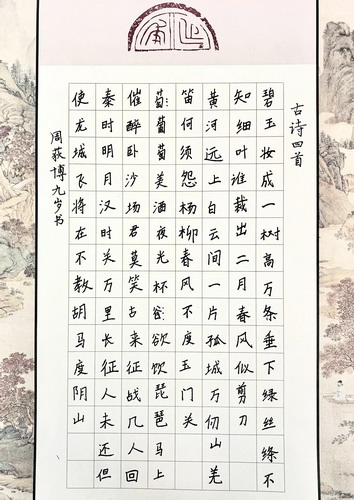 古诗四首
碧玉妆成一树高万条垂下绿丝绦不
知细叶谁裁出二月春风似剪刀
黄河远上白云间一片孤城万仞山羌
笛何须怨杨柳春风不度玉门关
葡萄美酒夜光杯欲饮琵琶马上
催醉卧沙场君莫笑古来征战几人回
秦时明月汉时关万里长征人未还但
使龙城飞将在不教胡马度阴山
周荻博九岁书